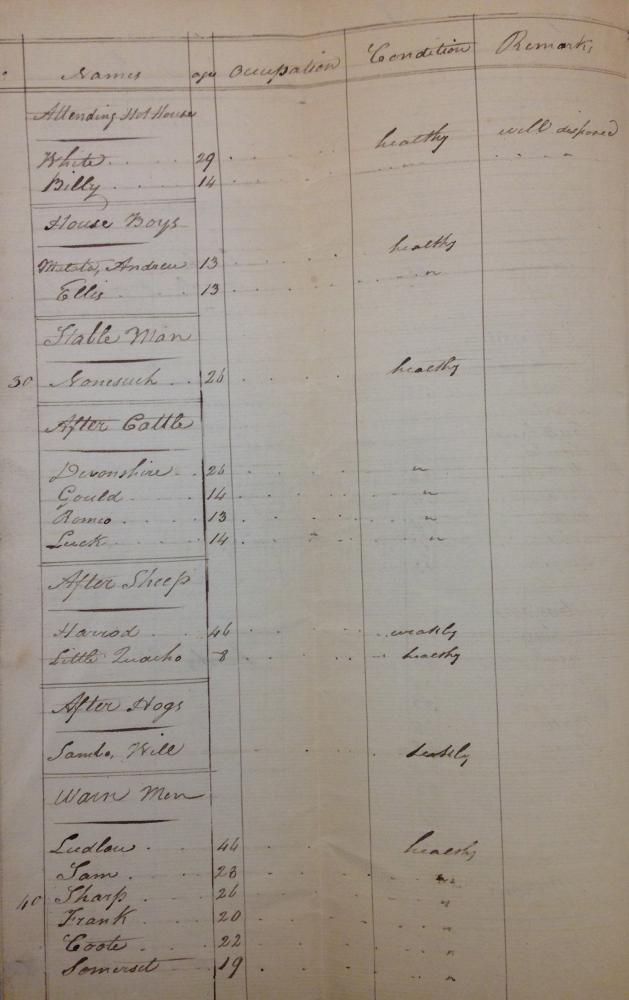 Names age Occupation Condition Remarks
Attending Hot House
White 29 healthy well disposed
Billy 14 " "
House Boys
Andrew 13 healthy
Ellis 13 "
Stable Man
30 Nonesuch 26 healthy
After Cattle
Devonshire 26 "
Gould 14 "
Romeo 13 "
Luck 14 "
After Sheep
Harrod 46 weakly
Little Quacko 8 healthy
After Hogs
Sambo, Will
Wain Men
Ludlow 46 healthy
Sam 28 "
40 Sharp 26 "
Frank 20 "
Coote 22 "
Somerset 19 "